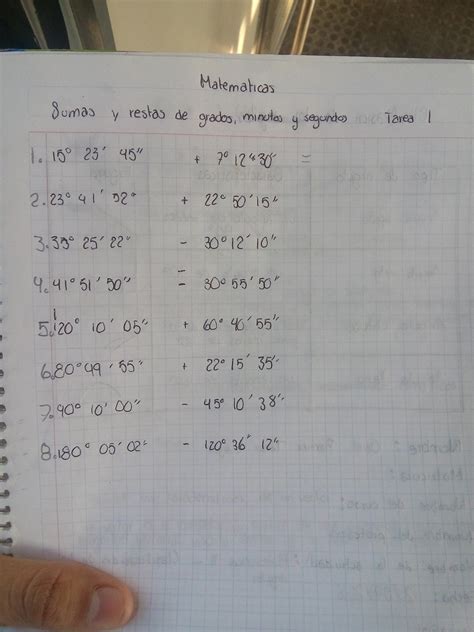 Matematicas
Sumas y restas de grados, minutos y segundos Tarea 1
1. 15° 23' 45" + 7° 12" 30" =
2. 23° 41' 52" + 22° 50' 15"
3. 35° 25' 22" - 30° 12' 10"
4. 41° 51' 50" = 30° 55' 50"
5. 120° 10' 05" + 60° 40' 55"
6. 80° 49' 55" + 22° 15' 35"
7. 90° 10' 00" - 45° 10' 38"
8. 180° 05' 02" - 120° 36' 12"